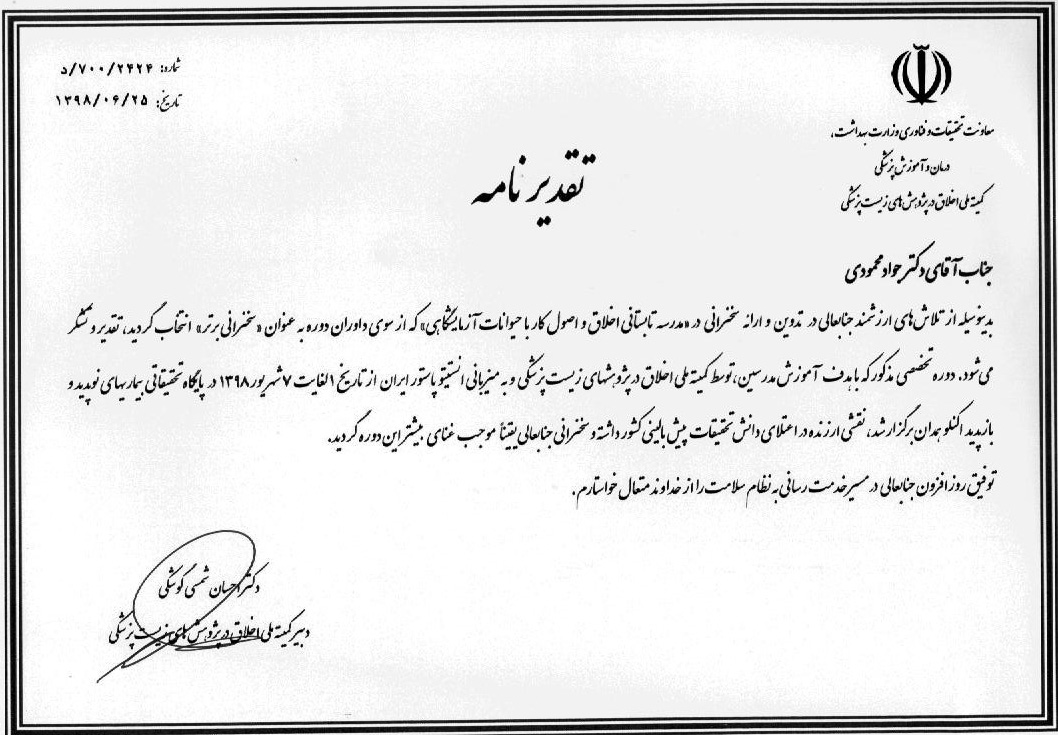 شماره: ۵/۷۰۰/۲۴۲۴
تاریخ: ۱۳۹۸/۰۶/۲۵
معاونت تحقیقات و فناوری وزارت بهداشت،
درمان و آموزش پزشکی
کمیته ملی اخلاق در پژوهش های زیست پزشکی
تقدیر نامه
جناب آقای دکتر جواد محمودی
بدینوسیله از تلاش های ارزشمند جنابعالی در تدوین و ارائه سخنرانی در «مدرسه تابستانی اخلاق و اصول کار با حیوانات آزمایشگاهی» که از سوی داوران دوره به عنوان «سخنرانی برتر» انتخاب گردید، تقدیر و تشکر
می شود. دوره تخصصی مذکور که با هدف آموزش مدرسین، توسط کمیته ملی اخلاق در پژوهشهای زیست پزشکی و به میزبانی انستیتو پاستور ایران از تاریخ ۱ لغایت ۷ شهریور ۱۳۹۸ در پایگاه تحقیقاتی بیماریهای نوپدید و
بازپدید اکنلو همدان برگزار شد، نقشی ارزنده در اعتلای دانش تحقیقات پیش بالینی کشور داشته و سخنرانی جنابعالی یقیناً موجب غنای بیشتر این دوره گردید.
توفیق روز افزون جنابعالی در مسیر خدمت رسانی به نظام سلامت را از خداوند متعال خواستارم.
دکتر احسان شمسی کوشکی
دبیر کمیته ملی اخلاق در پژوهش های زیست پزشکی